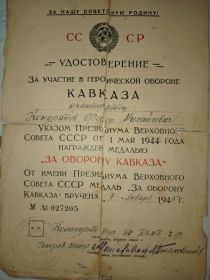 ЗА НАШУ СОВЕТСКУЮ РОДИНУ!
СС СР
УДОСТОВЕРЕНИЕ
ЗА УЧАСТИЕ В ГЕРОИЧЕСКОЙ ОБОРОНЕ
КАВКАЗА
красноармеец
Кондратов Федор Михайлович
УКАЗОМ ПРЕЗИДИУМА ВЕРХОВНОГО
СОВЕТА СССР ОТ 1 МАЯ 1944 ГОДА
НАГРАЖДЕН МЕДАЛЬЮ
„ЗА ОБОРОНУ КАВКАЗА“
ОТ ИМЕНИ ПРЕЗИДИУМА ВЕРХОВНОГО
СОВЕТА СССР МЕДАЛЬ „ЗА ОБОРОНУ
КАВКАЗА“ ВРУЧЕНА 7 1945 Г.
М № 027205
М.П.
Командир
генерал-майор